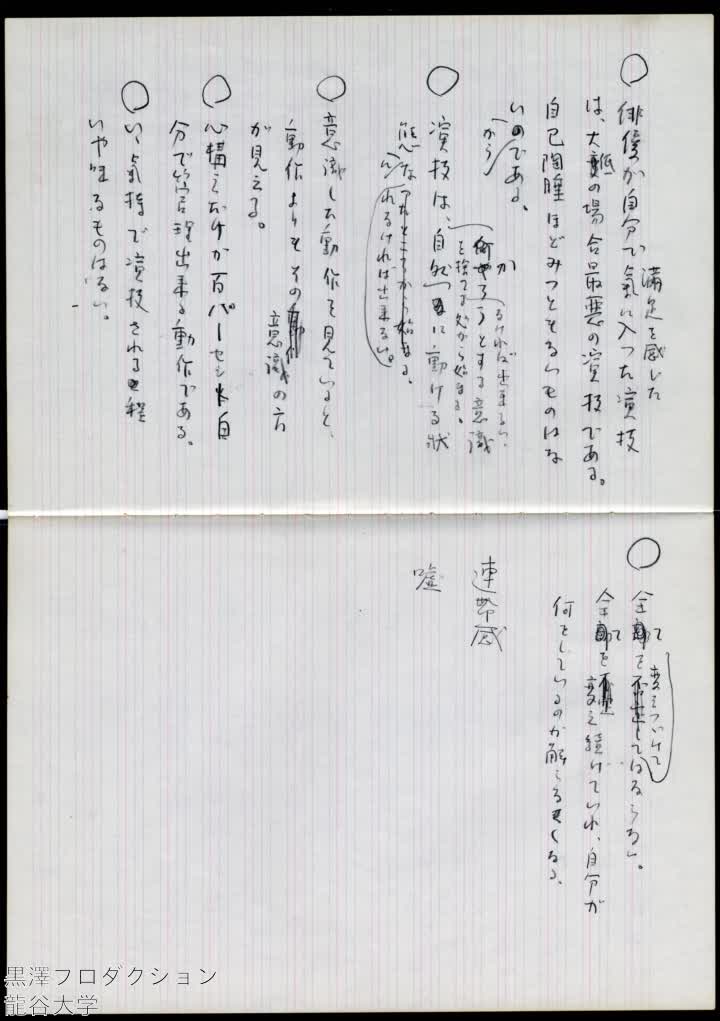 満足を感じた
○俳優が自分で氣に入つた演技
は、大抵の場合最悪の演技である。
自己陶酔ほどみつともないものはな
いのである。
から
か
なければ出来ない。
何かやろうとする意識
を捨てる処から始まる。
○演技は、自然に動ける状
態なつたところから始まる。
になれなければ出来ない。
○意識した動作を見ていると、
動作よりもその意識の方
が見える。
○心構えだけが百パーセント自
分で管理出来る動作である。
○いゝ氣持で演技される程
いやなものはない。
変えつづけて
○全てを否定してはならない。
全てを変え続けていれ、自分が
何をしているのか解らなくなる。
連帯感
嘘
黒澤プロダクション
龍谷大学